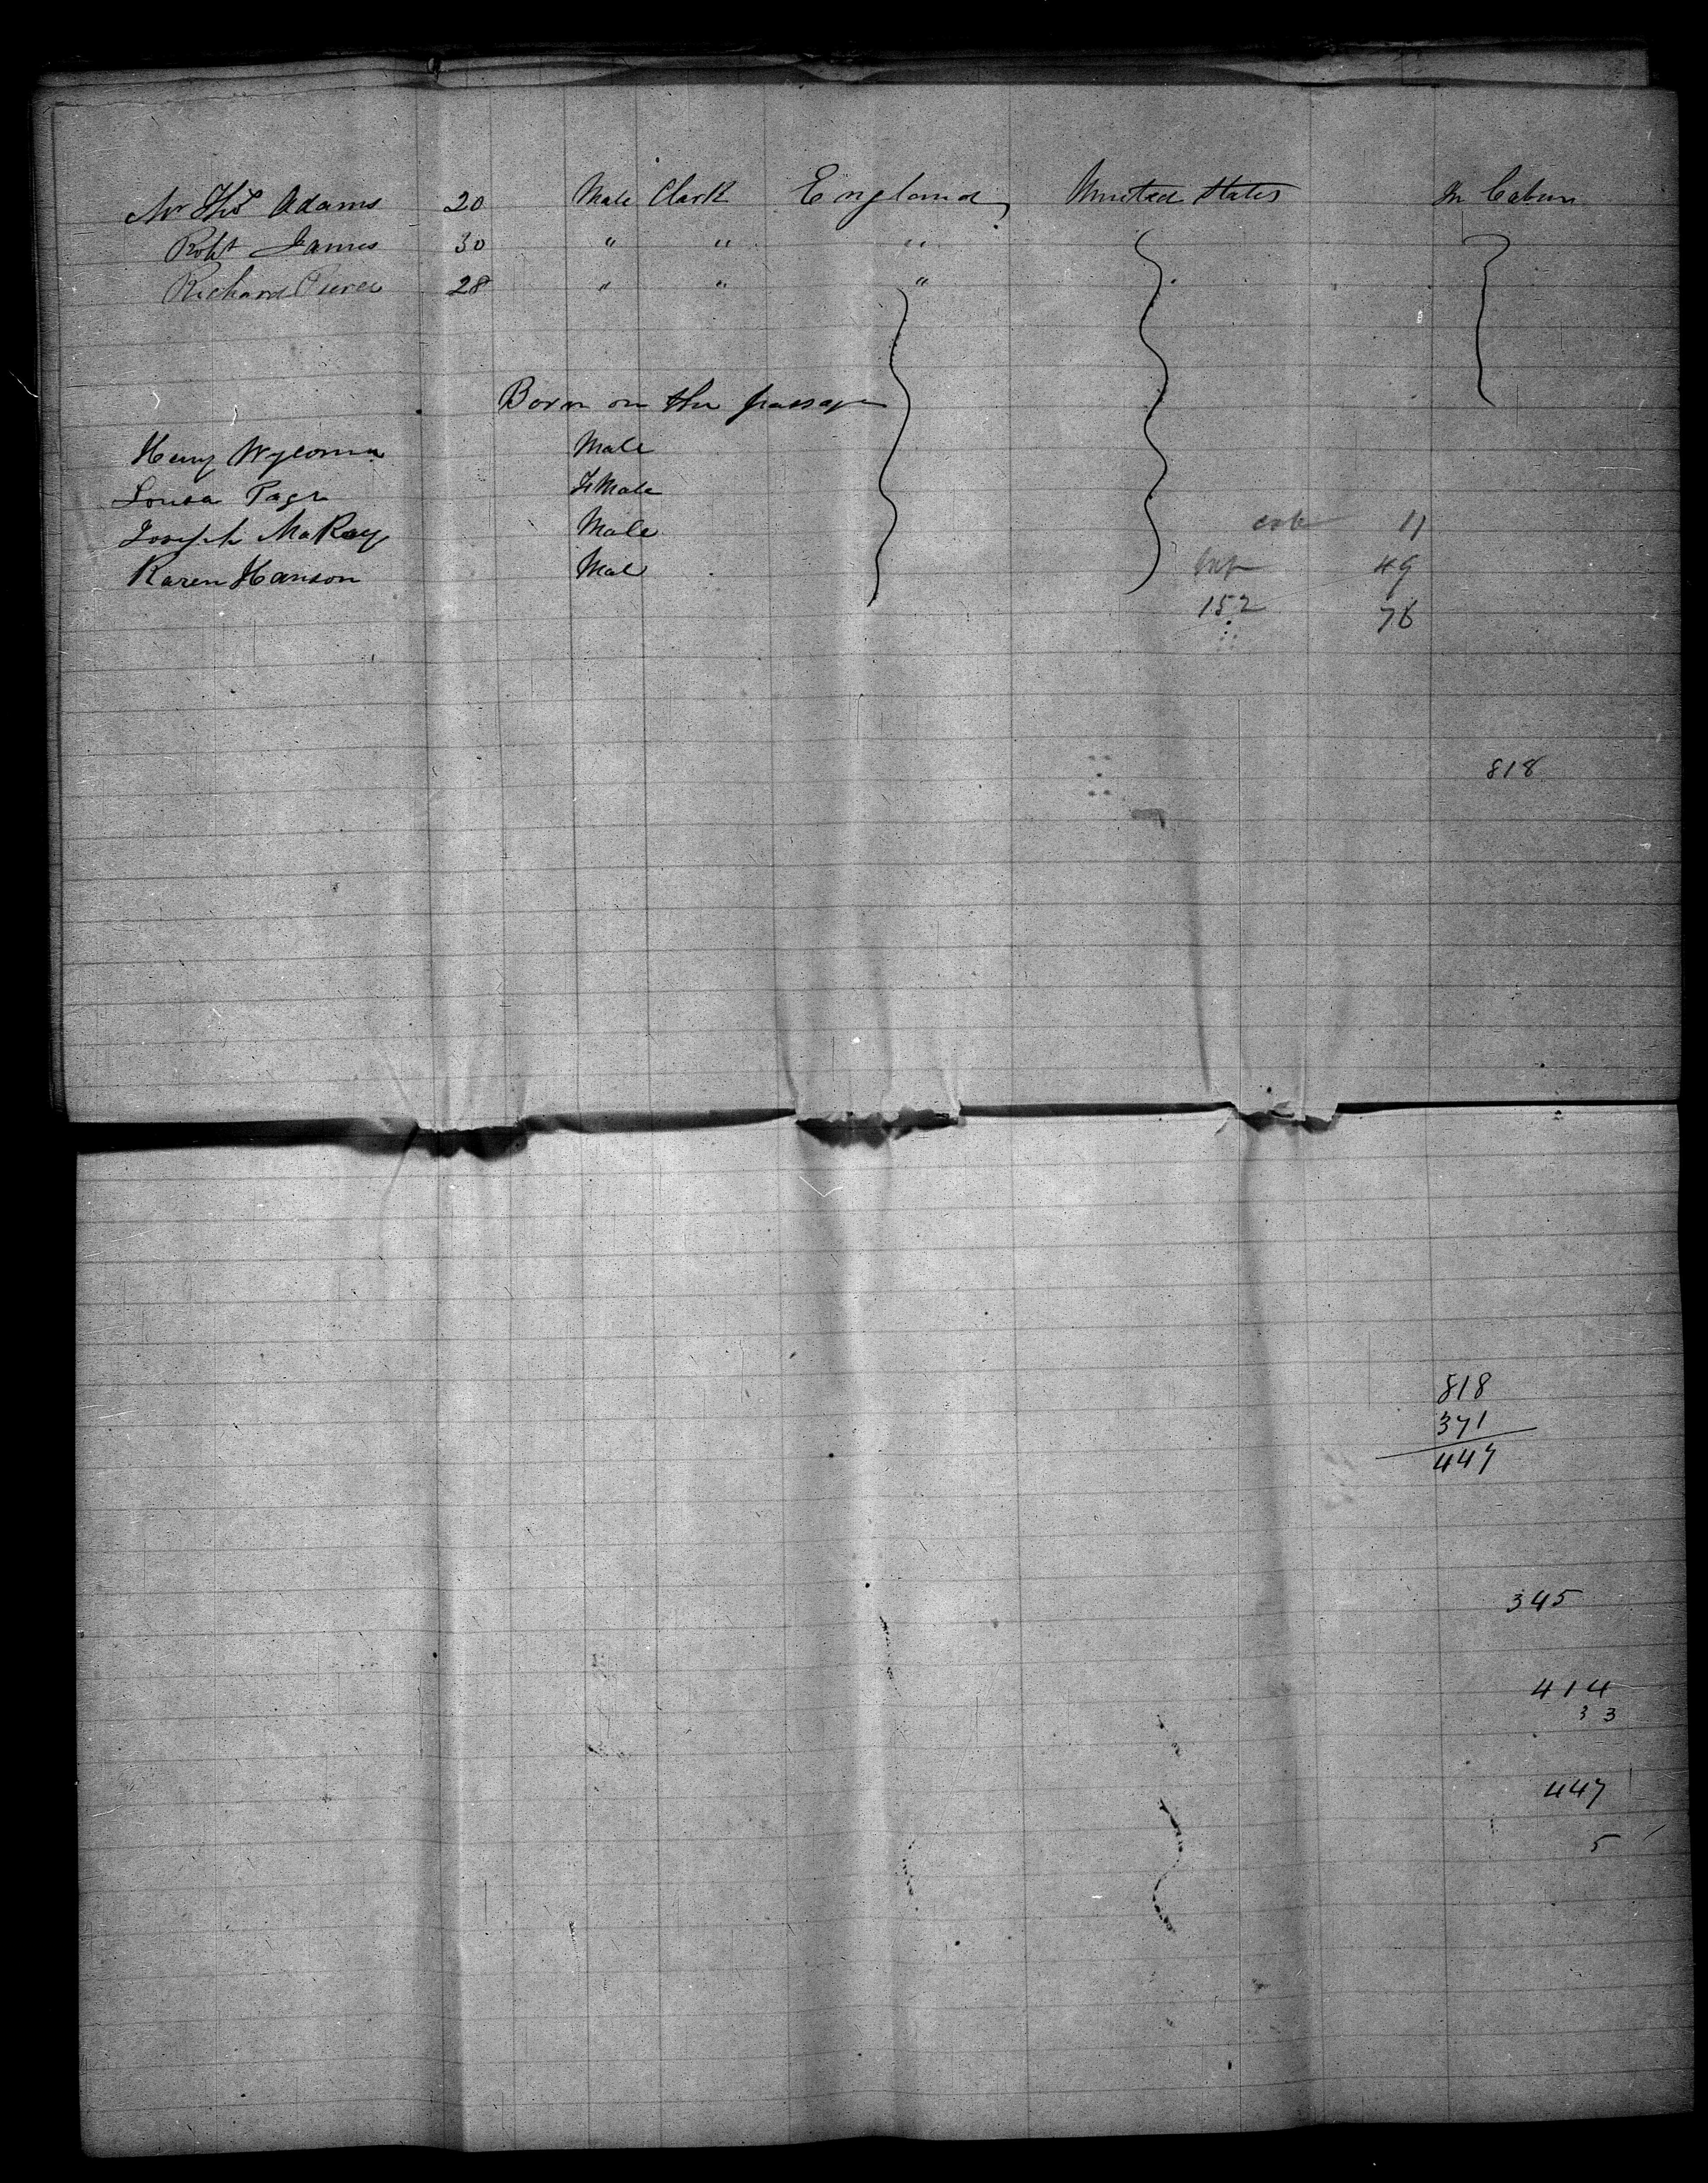 Mr Thos Adams 20 Male Clark England United States In Cabin
Robt James 30 " " "
Richard Pierce 28 " " "
Born on the passage
Henry Male
Louisa Page FeMale
Joseph McKay Male
Karen Hanson Mal
11
Inf 49
152 76
818
818
371
447
345
414
33
447
5